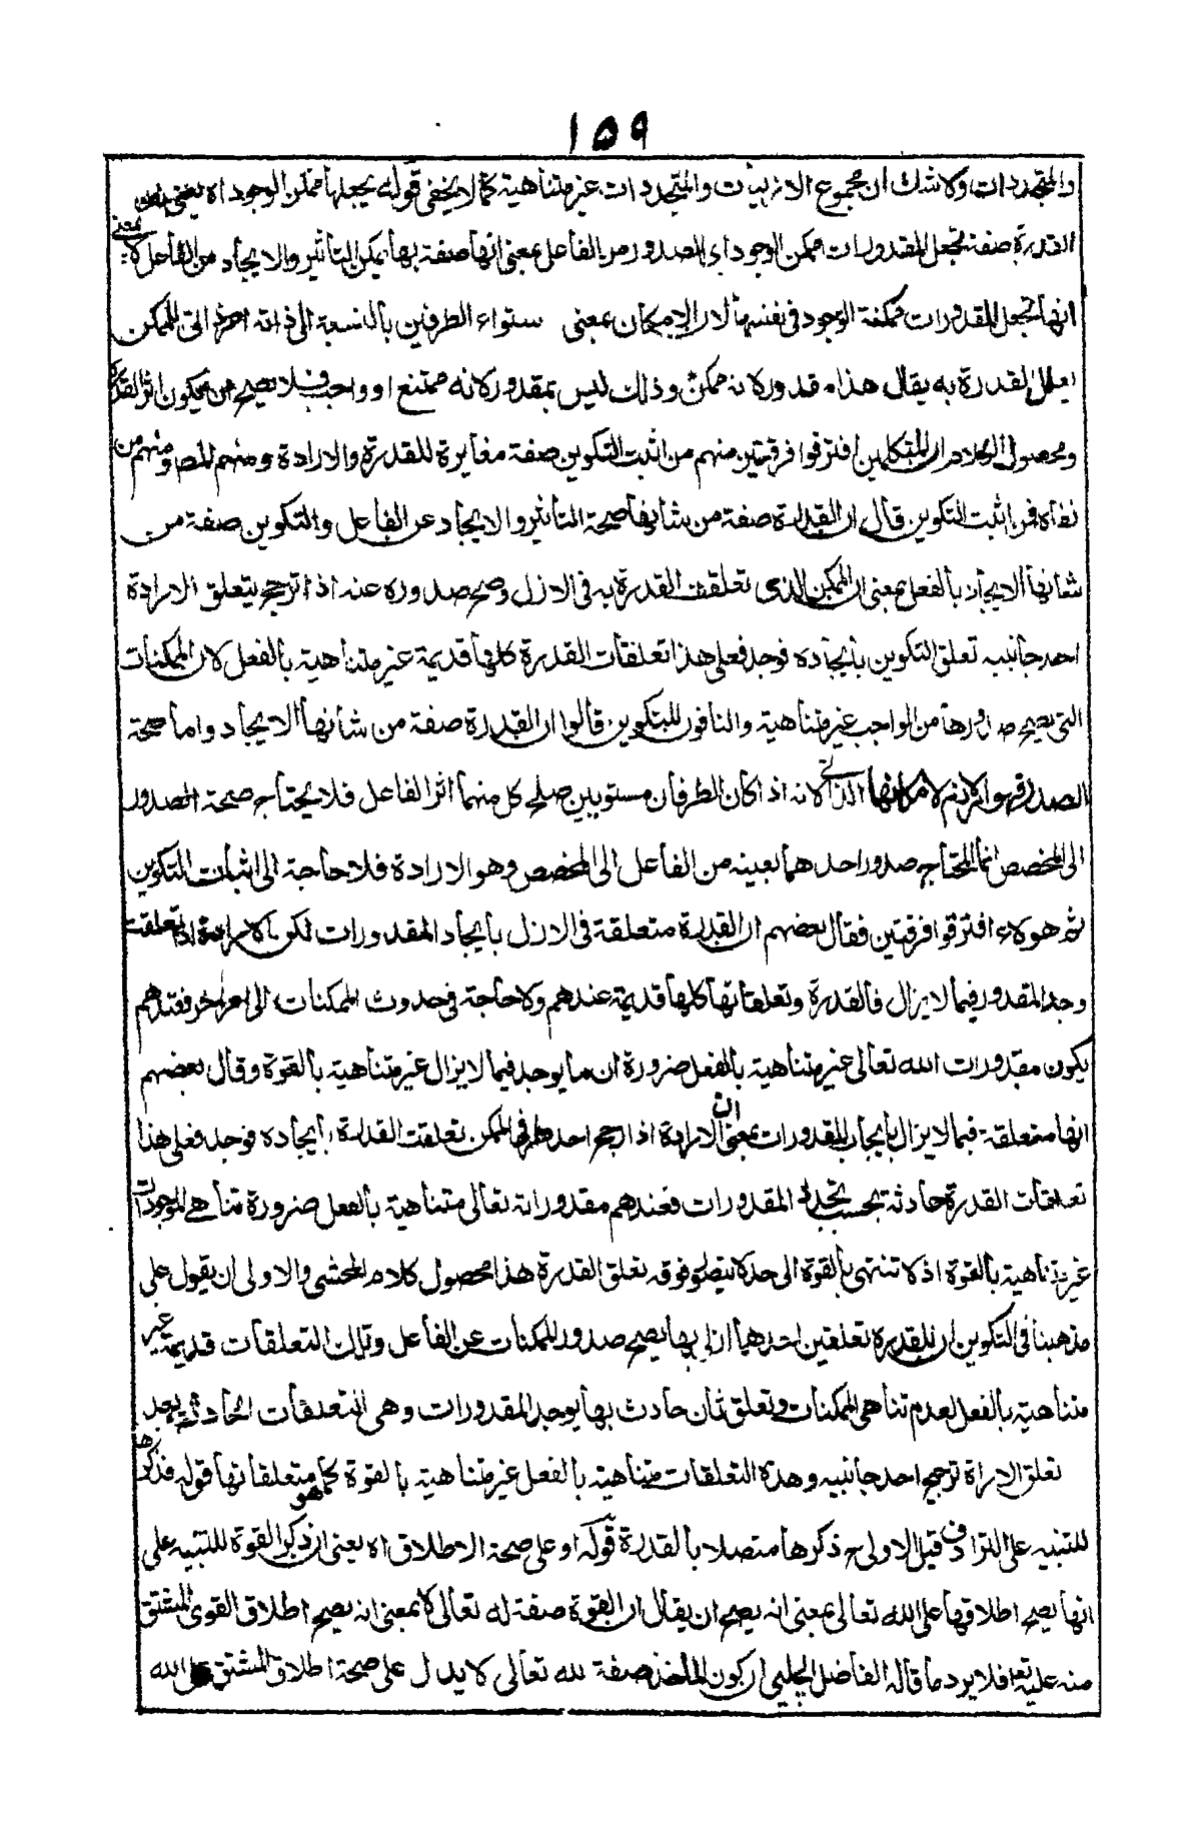 ١٥٩
والمتجددات ولا شك ان مجموع الازليات والمتجددات غير متناهية كما لا يخفى قوله يجعلها ممكن الوجود اه يعنى
القدرة صفة تجعل المقدورات ممكن الوجود اى الصدور من الفاعل بمعنى انها صفة بها يمكن التاثير والايجاد من الفاعل لا بمعنى
انها تجعل المقدورات ممكنة الوجود فى نفسها لان الامكان بمعنى ستواء الطرفين بالنسبة الى ذاته امر ذاتى للممكن
يعلل القدرة به يقال هذا مقدور لانه ممكن وذلك ليس بمقدور لانه ممتنع او واجب فلا يصح من يكون اثر القدرة
ومحصول الكلام ان المتكلمين افترقوا فرقتين منهم من اثبت التكوين صفة مغايرة للقدرة والارادة ومنهم المصـ ومنهم من
نفاه فمن اثبت التكوين قال ان القدرة صفة من شانها صحة التاثير والايجاد عن الفاعل والتكوين صفة من
شانها الايجاد بالفعل بمعنى ان الممكن الذى تعلقت القدرة به فى الازل وصح صدوره عنه اذا ترجح بتعلق الارادة
احد جانبيه تعلق التكوين بايجاده فوجد فعلى هذا تعلقات القدرة كلها قديمة غير متناهية بالفعل لان الممكنات
التى يصح صدورها من الواجب غير متناهية والنافون للتكوين قالوا ان القدرة صفة من شانها الايجاد واما صحة
الصدور فهو لازم لامكانها الذاتى لانه اذا كان الطرفان مستويين صلح كل منهما اثر الفاعل فلا يحتاج صحة الصدور
الى المخصص انما المحتاج صدور احدهما بعينه من الفاعل الى المخصص وهو الارادة فلا حاجة الى اثبات التكوين
ثم هولاء افترقوا فرقتين فقال بعضهم ان القدرة متعلقة فى الازل بايجاد المقدورات لكن الارادة اذا تعلقت
وجد المقدور فيما لا يزال فالقدرة وتعلقاتها كلها قديمة عندهم ولا حاجة فى حدوث الممكنات الى امر اخر فعندهم
يكون مقدورات الله تعالى غير متناهية بالفعل ضرورة ان ما يوجد فيما لا يزال غير متناهية بالقوة وقال بعضهم
انها متعلقة فيما لا يزال بايجاد المقدورات بمعنى ان الارادة اذا رجح احد طرفى الممكن تعلقت القدرة بايجاده فوجد فعلى هذا
تعلقات القدرة حادثة بحسب تجدد المقدورات فعندهم مقدوراته تعالى متناهية بالفعل ضرورة تناهى الموجودات
غير متناهية بالقوة اذ لا تنتهى بالقوة الى حد لا يتصور فوقه تعلق القدرة هذا محصول كلام المحشى والاولى ان يقول على
مذهبنا فى التكوين ان للقدرة تعلقين احدهما ازلى بها يصح صدور الممكنات عن الفاعل وتلك التعلقات قديمة غير
متناهية بالفعل لعدم تناهى الممكنات وتعلق ثان حادث بها يوجد المقدورات وهى التعلقات الحادثة بعد
تعلق الارادة ترجح احد جانبيه وهذه التعلقات متناهية بالفعل غير متناهية بالقوة كما هو متعلقاتها قوله فذكرها
للتنبيه على الترادف قيل الاولى ح ذكرها متصلا بالقدرة قوله او على صحة الاطلاق اه يعنى ان ذكر القوة للتنبيه على
انها يصح اطلاقها على الله تعالى بمعنى انه يصح ان يقال ان القوة صفة له تعالى لا بمعنى انه يصح اطلاق القوى المشتق
منه عليه تعا فلا يرد ما قاله الفاضل الچلپى ان كون الماخذ صفة لله تعالى لا يدل على صحة اطلاق المشتق على الله